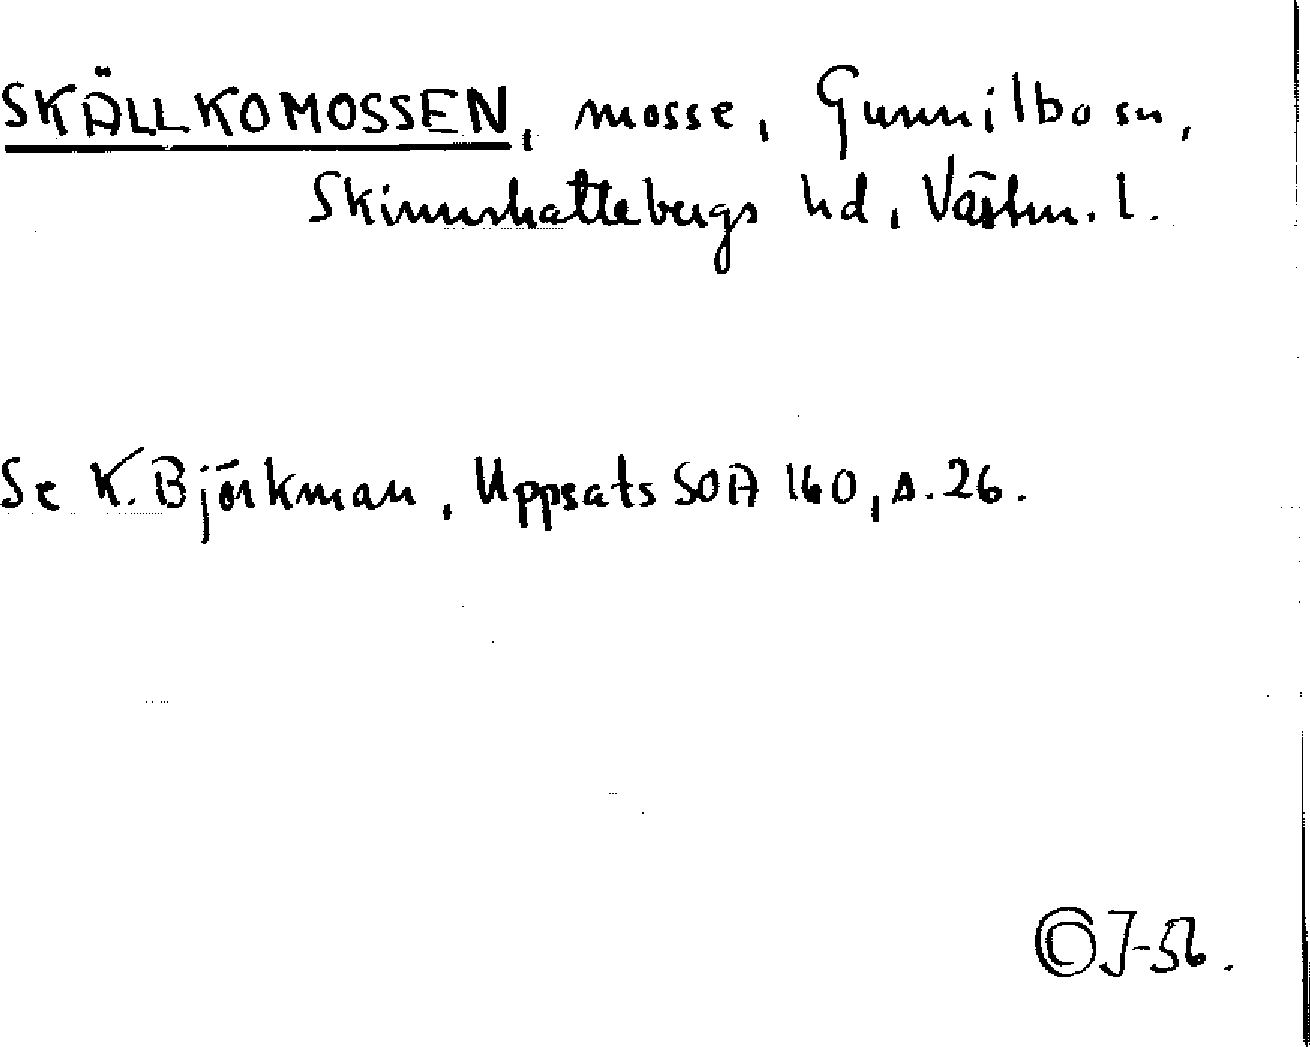 SKÄLLKOMOSSEN, mosse, Gunnilbo sn,
Skinnskattebergs hd, Västm. l.
Se K. Björkman, Uppsats SOA 160, s. 26.
©J-56.